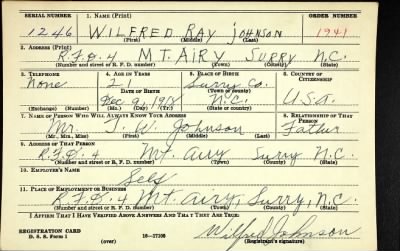 SERIAL NUMBER 1. NAME (Print) ORDER NUMBER
1246 WILFRED RAY JOHNSON 1941
(First) (Middle) (Last)
2. ADDRESS (Print)
R.F.D. 4 MT. AIRY SURRY N.C.
(Number and street or R. F. D. number) (Town) (County) (State)
3. TELEPHONE 4. AGE IN YEARS 5. PLACE OF BIRTH 6. COUNTRY OF CITIZENSHIP
None 21 Surry Co.
DATE OF BIRTH (Town or county)
Dec 9 N.C. U.S.A.
(Exchange) (Number) (Mo.) (Day) (Yr.) (State or country)
7. NAME OF PERSON WHO WILL ALWAYS KNOW YOUR ADDRESS 8. RELATIONSHIP OF THAT PERSON
Mr. J. W. Johnson Father
(Mr., Mrs., Miss) (First) (Middle) (Last)
9. ADDRESS OF THAT PERSON
R.F.D. 4 Mt. airy Surry N.C.
(Number and street or R. F. D. number) (Town) (County) (State)
10. EMPLOYER'S NAME
Self
11. PLACE OF EMPLOYMENT OR BUSINESS
R.F.D. 4 Mt. airy, Surry, N.C.
(Number and street or R. F. D. number) (Town) (County) (State)
I AFFIRM THAT I HAVE VERIFIED ABOVE ANSWERS AND THAT THEY ARE TRUE.
REGISTRATION CARD
D. S. S. Form 1 16—17105 Wilfred Johnson
(over) (Registrant's signature)